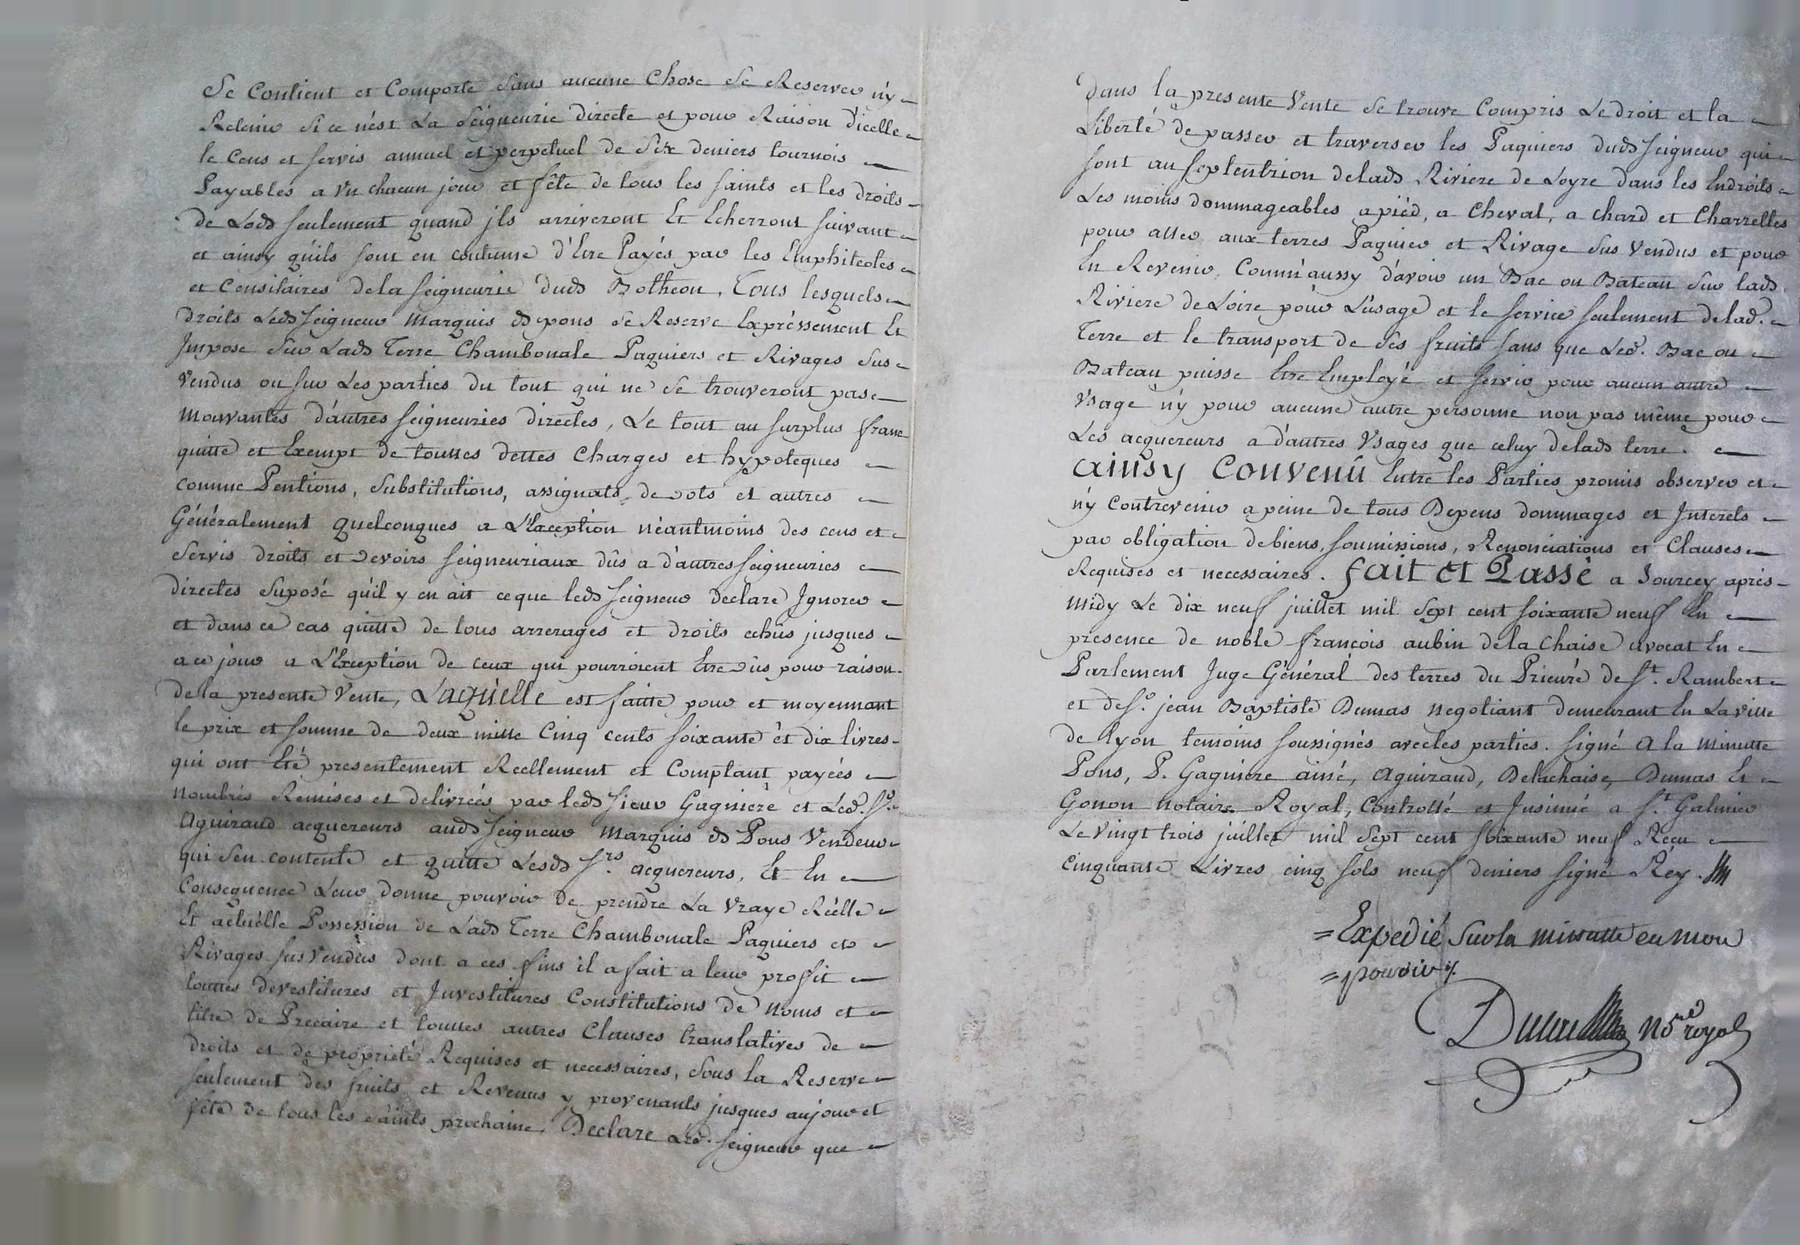 Se Contient et Comporte sans aucune Chose Se Reserver n'y
Retenir Si ce n'est La Seigneurie directe et pour Raison d'icelle
le Cens et servis annuel et perpetuel de Six deniers tournois
Payables a Un chacun jour et fête de tous les saints et les droits
de Lods seulement quand jls arriveront Et Echerront suivant
et ainsy qu'ils sont en coutume d'Etre Payés par les Emphiteotes
et Censitaires de la Seigneurie dudt Botheon, Tous lesquels
droits Ledt Seigneur Marquis de pons Se Reserve Expréssement Et
Jmpose Sur Ladt Terre Chambonale Paquiers et Rivages Sus
Vendus ou sur Les parties du tout qui ne Se trouveront pas
Mouvantes d'autres Seigneuries directes, Le tout au surplus franc
quitte et Exempt de touttes dettes Charges et hypoteques
comme Pentions, Substitutions, assignats de dots et autres
Généralement quelconques a L'Exception néantmoins des cens et
Servis droits et devoirs seigneuriaux dûs a d'autres seigneuries
directes Suposé qu'il y en ait ce que ledt Seigneur declare Jgnorer
et dans ce cas quitte de tous arrerages et droits echûs jusques
a ce jour a L'Exception de ceux qui pourroient Etre dûs pour raison
de la presente Vente, Laquelle est faitte pour et moyennant
le prix et somme de deux mille Cinq cents soixante et dix livres
qui ont Eté presentement Reellement et Comptant payées
nombrés Remises et delivrées par ledt Sieur Gagniere et Led. Sr.
Aguiraud acquereurs audt Seigneur Marquis de Pons Vendeur
qui S'en contente et quitte Lesdt Srs. acquereurs, Et En
Consequence Leur donne pouvoir de prendre La Vraye Réelle
Et actuelle Possession de Ladt Terre Chambonale Paquiers et
Rivages sus Vendus dont a ces fins il a fait a leur proffit
touttes devestitures et Jnvestitures Constitutions de Noms et
titre de Precaire et touttes autres Clauses translatives de
droits et de propriété Requises et necessaires, Sous la Reserve
seulement des fruits et Revenus y provenants jusques au jour et
fête de tous les Saints prochaine. Declare Led. Seigneur que
Dans la presente Vente Se trouve Compris Le droit et la
Liberté de passer et traverser les Paquiers dudt Seigneur qui
sont au septentrion de ladt Riviere de Loyre dans les Endroits
Les moins dommageables a pièd, a Cheval, a chard et Charrettes
pour aller aux terres Paquier et Rivage Sus Vendus et pour
En Revenir, Comm'aussy d'avoir un Bac ou Bateau Sur ladt
Riviere de Loire pour L'usage et le service seulement de lad.
Terre et le transport de Ses fruits sans que Led. Bac ou
Bateau puisse Etre Employé et servir pour aucun autre
Usage n'y pour aucune autre personne non pas même pour
Les acquereurs a d'autres Usages que celuy de ladt terre.
Ainsy Convenû Entre les Parties promis observer et
n'y Contrevenir a peine de tous Depens dommages et Jnterets
par obligation de biens, soumissions, Renonciations et Clauses
Requises et necessaires. fait et Passé a Sourcey après
Midy Le dix neuf juillet mil Sept cent soixante neuf En
presence de noble françois aubin de la Chaise avocat En
Parlement Juge Général des terres du Prieuré de St. Rambert
et de Sr. jean Baptiste Dumas negotiant demeurant En La ville
de Lyon temoins soussignés avec les parties. Signé A la Minutte
Pons, P. Gagniere ainé, Aguiraud, Delachaise, Dumas Et
Gonon Notaire Royal, Controllé et Jnsinué a St. Galmier
Le vingt trois juillet mil Sept cent soixante neuf Reçu
Cinquante Livres cinq sols neuf deniers signé Réy.
= Expedié Sur la minutte en mon
= pouvoir
Nore royal